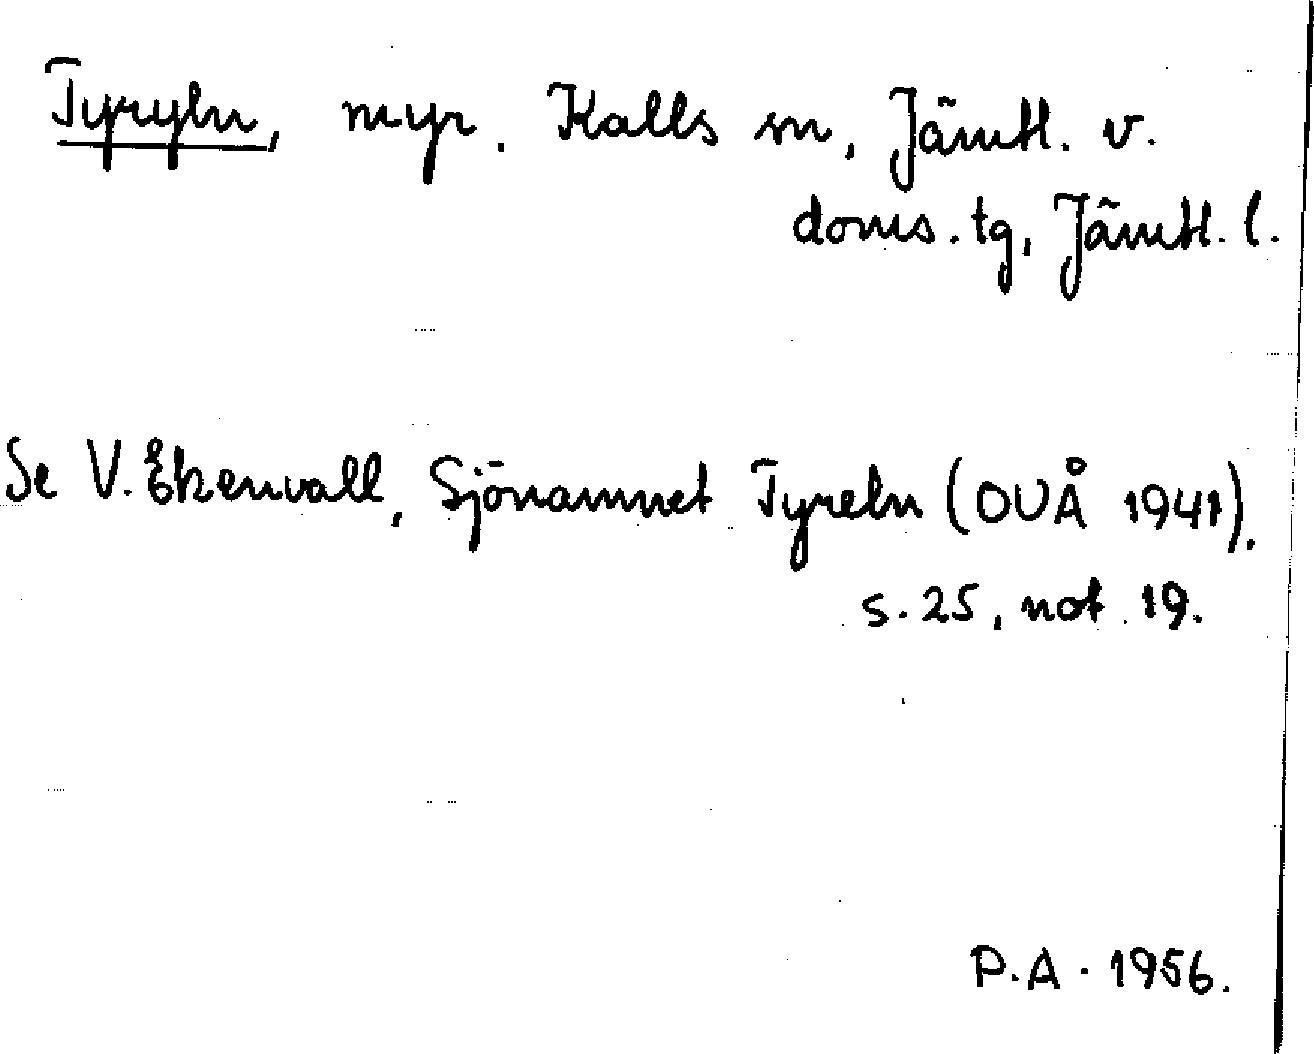 Tyryln, myr. Kalls sn, Jämtl. v.
doms. tg, Jämtl. l.
Se V. Ekenvall, Sjönamnet Tyreln (OUÅ 1941).
s. 25, not 19.
P.A. 1956.